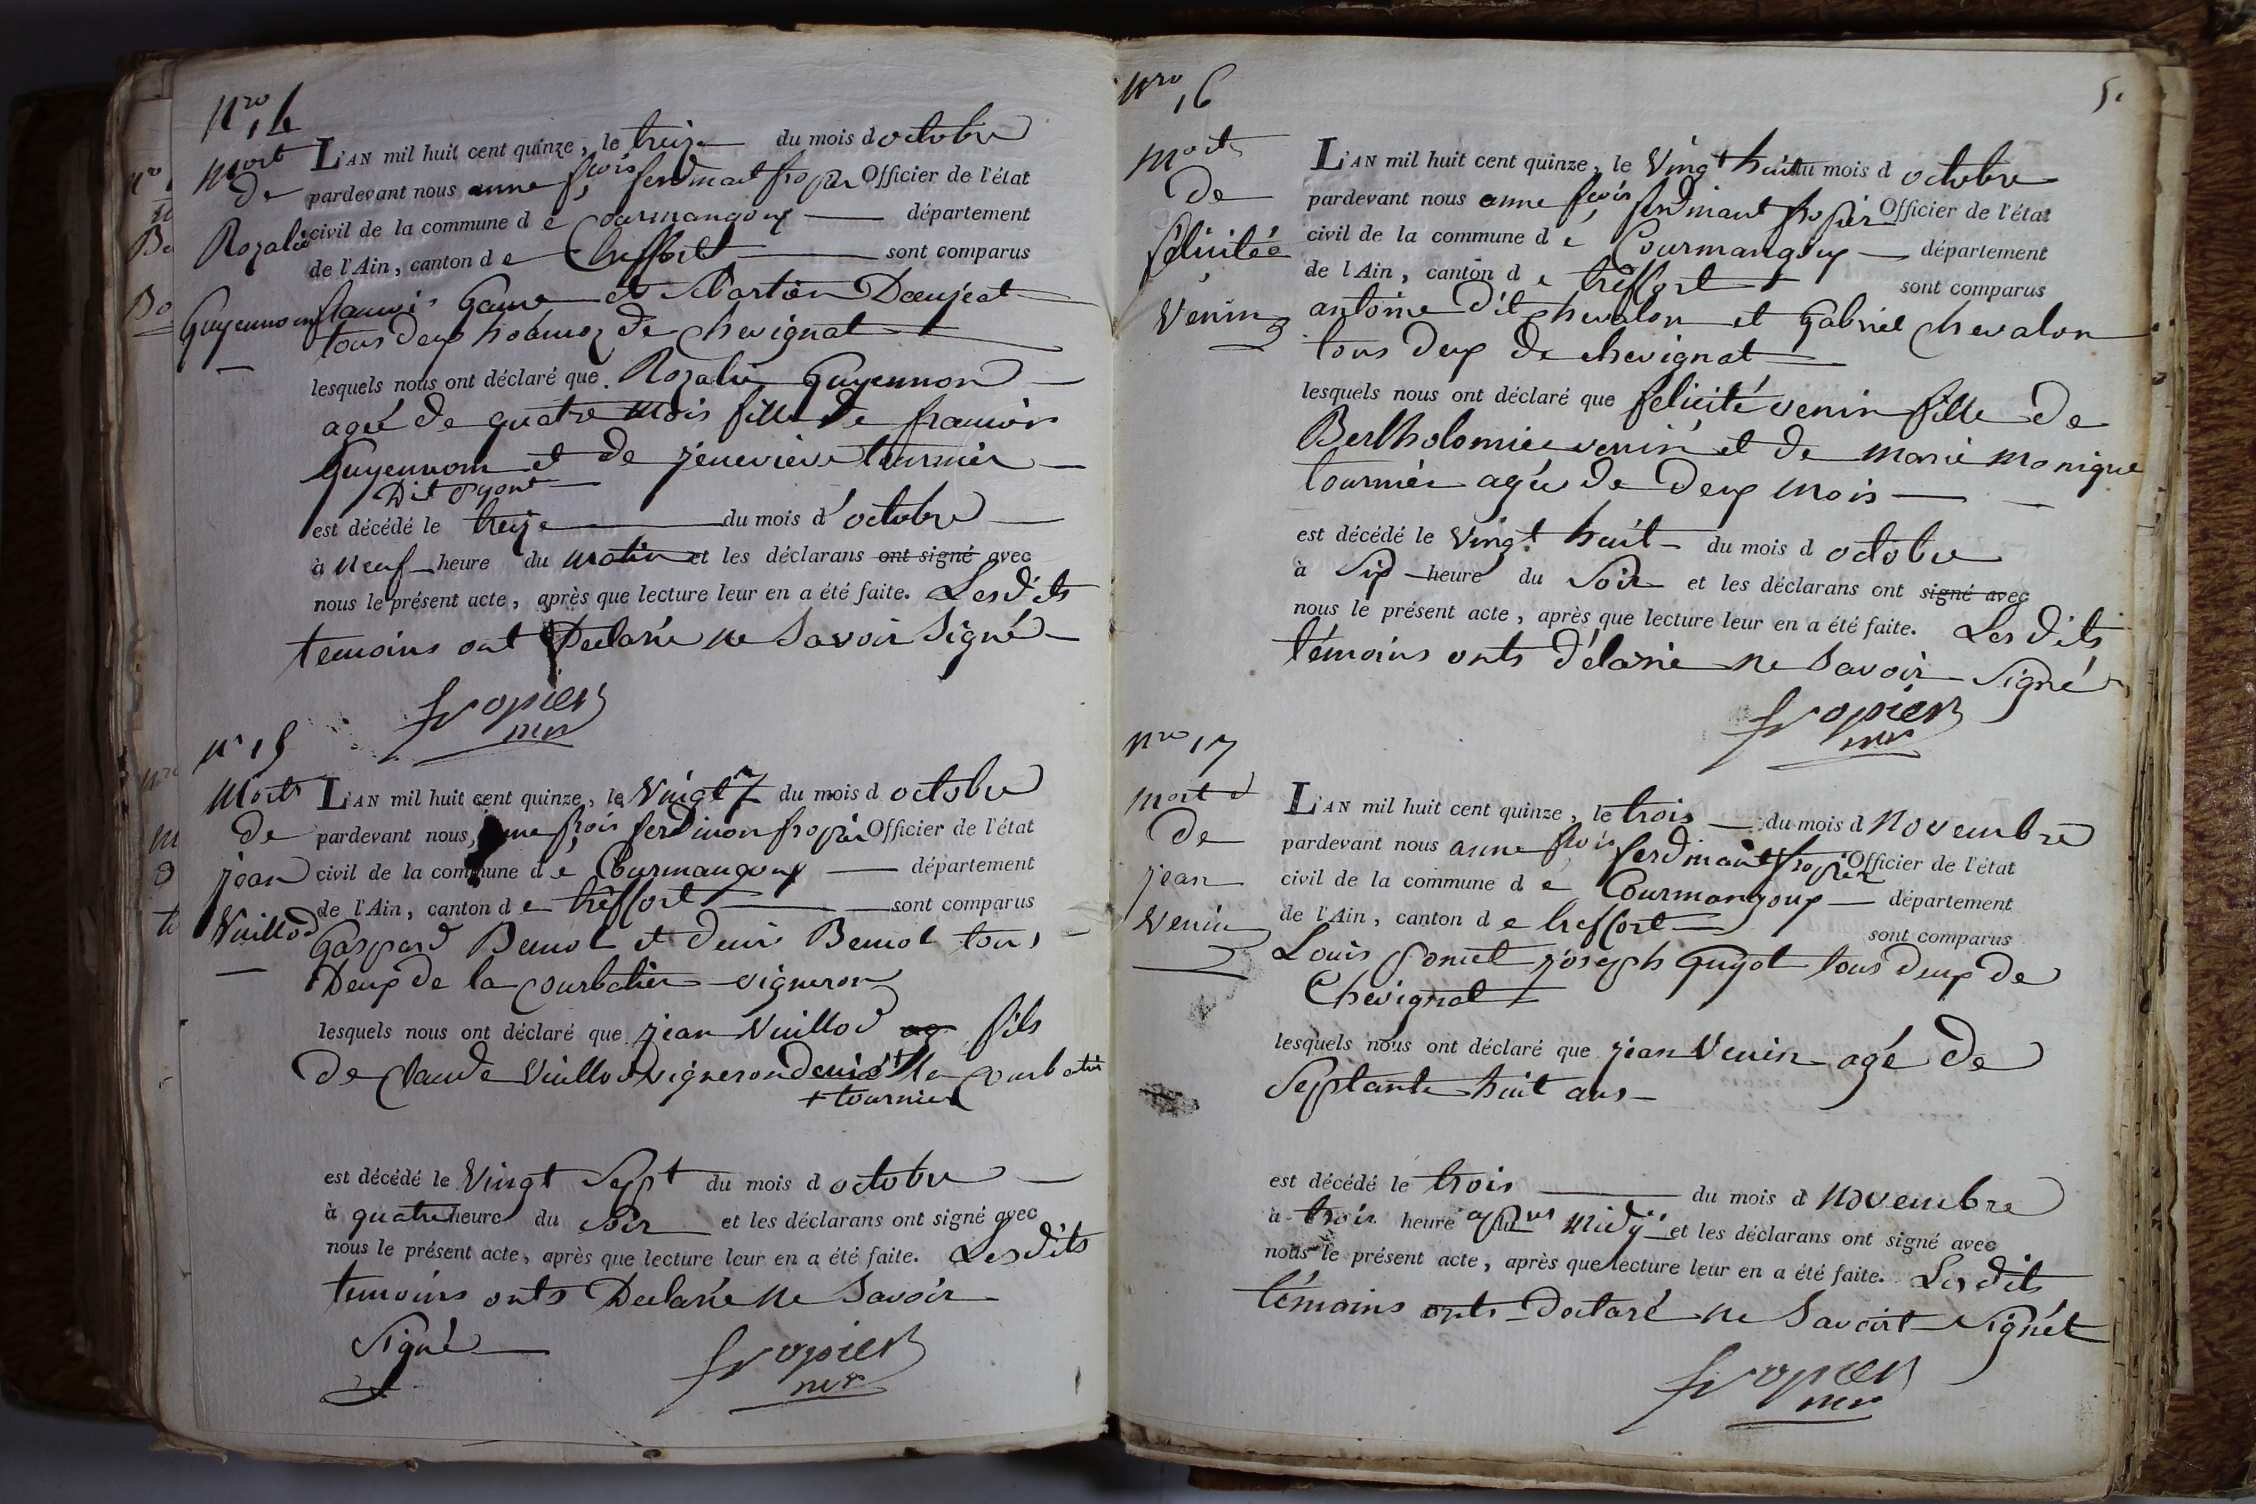 Nro 14
Mort
de
Rozalie
Guyennom
L'AN mil huit cent quinze, le treize du mois d octobre
pardevant nous anne fçois ferdinant fropier Officier de l'état
civil de la commune d e Courmangoux département
de l'Ain, canton d e treffort sont comparus
tous deux de Chevignat
lesquels nous ont déclaré que Rozalie Guyennon
agée de quatre mois fille de francois
Guyennom et de jenevieve tournier
Dit
est décédé le treize du mois d' octobre
à neuf heure du matin et les déclarans ont signé avec
nous le présent acte, après que lecture leur en a été faite. Les dits
temoins ont Declarée ne Savoir Signé
fropier
mer
No 15
Mort
de
jean
Vuillod
L'AN mil huit cent quinze, le Vingt 7 du mois d octobre
pardevant nous, anne fçois ferdinon fropier Officier de l'état
civil de la commune d e Courmangoux département
de l'Ain, canton d e tréffort sont comparus
Gaspard Benoit et denis Benoit tous
Deux de la Courbatier vigneron
lesquels nous ont déclaré que jean Vuillod ag fils
de Claude Vuillod vigneron denise la Courbatier
+ tournier
est décédé le Vingt Sept du mois d octobre
à quatre heure du Soir et les déclarans ont signé avec
nous le présent acte, après que lecture leur en a été faite. Les dits
temoins onts Declarée ne Savoir
Signé
fropier
mer
Nro 16
Mort
de
félicitée
Venin
5
L'AN mil huit cent quinze, le Vingt huit du mois d octobre
pardevant nous anne fçois ferdinant fropier Officier de l'état
civil de la commune d e Courmangoux département
de l'Ain, canton d e tréffort sont comparus
antoine Dit Chevalon et Gabriel Chevalon
tous deux de chevignat
lesquels nous ont déclaré que felicité venin fille de
Bertholomiee venin et de marie monique
tournier agée de deux mois
est décédé le Vingt huit du mois d octobre
à Six heure du Soir et les déclarans ont signé avec
nous le présent acte, après que lecture leur en a été faite. Les dits
témoins onts délarié ne Savoir Signé
fropier
mer
Nro 17
mort
de
jean
Venin
L'AN mil huit cent quinze, le trois du mois d Novembre
pardevant nous anne fçois ferdinant fropier Officier de l'état
civil de la commune d e Courmangoux département
de l'Ain, canton d e treffort sont comparus
Louis joseph Guyot tous deux de
Chevignat
lesquels nous ont déclaré que jean Venin agé de
Septante huit ans
est décédé le trois du mois d Novembre
à trois heure après midy et les déclarans ont signé avec
nous le présent acte, après que lecture leur en a été faite. Les dits
témoins onts Déclaré ne Savoirt Signét
fropier
mer